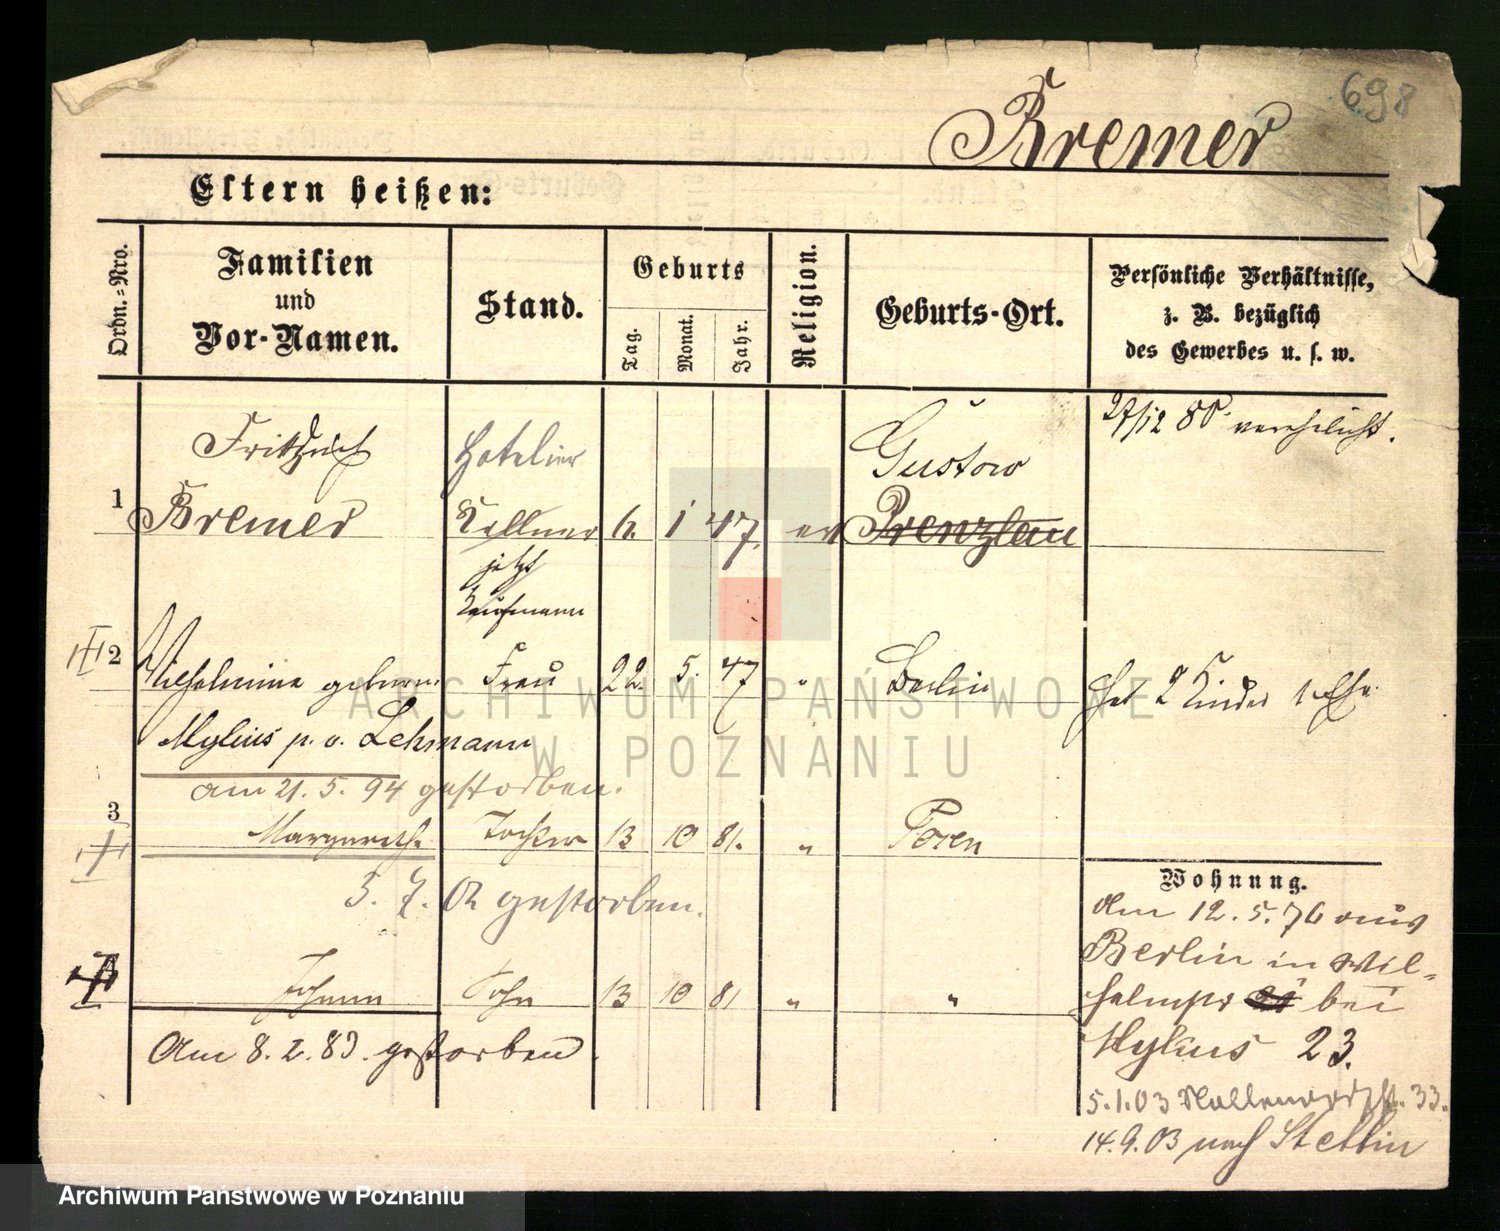 698
Bremer
Eltern heißen:
Ordn.-Nro.
Familien
und
Vor-Namen.
Stand.
Geburts
Tag.
Monat.
Jahr.
Religion.
Geburts-Ort.
Persönliche Verhältnisse,
z. B. bezüglich
des Gewerbes u. s. w.
27/12 80 verehelicht.
Hotelier
Gustow
1 Bremer Kellner 6. 1 47. ev Prenzlau
jetzt
Kaufmann
2 Wilhelmine geboren Frau 22. 5. 47 " Berlin hat 2 Kinder 1. Ehe
Mylius p. v. Lehmann
am 21. 5. 94 gestorben.
3 Margarethe Tochter 13 10 81. " Posen
Wohnung.
5. 7. 02 gestorben.
Johann Sohn 13 10 81 " "
Am 8. 2. 83. gestorben.
Am 12. 5. 76 aus
Berlin in Wil-
helmspl bei
Mylius 23.
5.1.03 33.
14.9.03 nach Stettin
ARCHIWUM PAŃSTWOWE
W POZNANIU
Archiwum Państwowe w Poznaniu